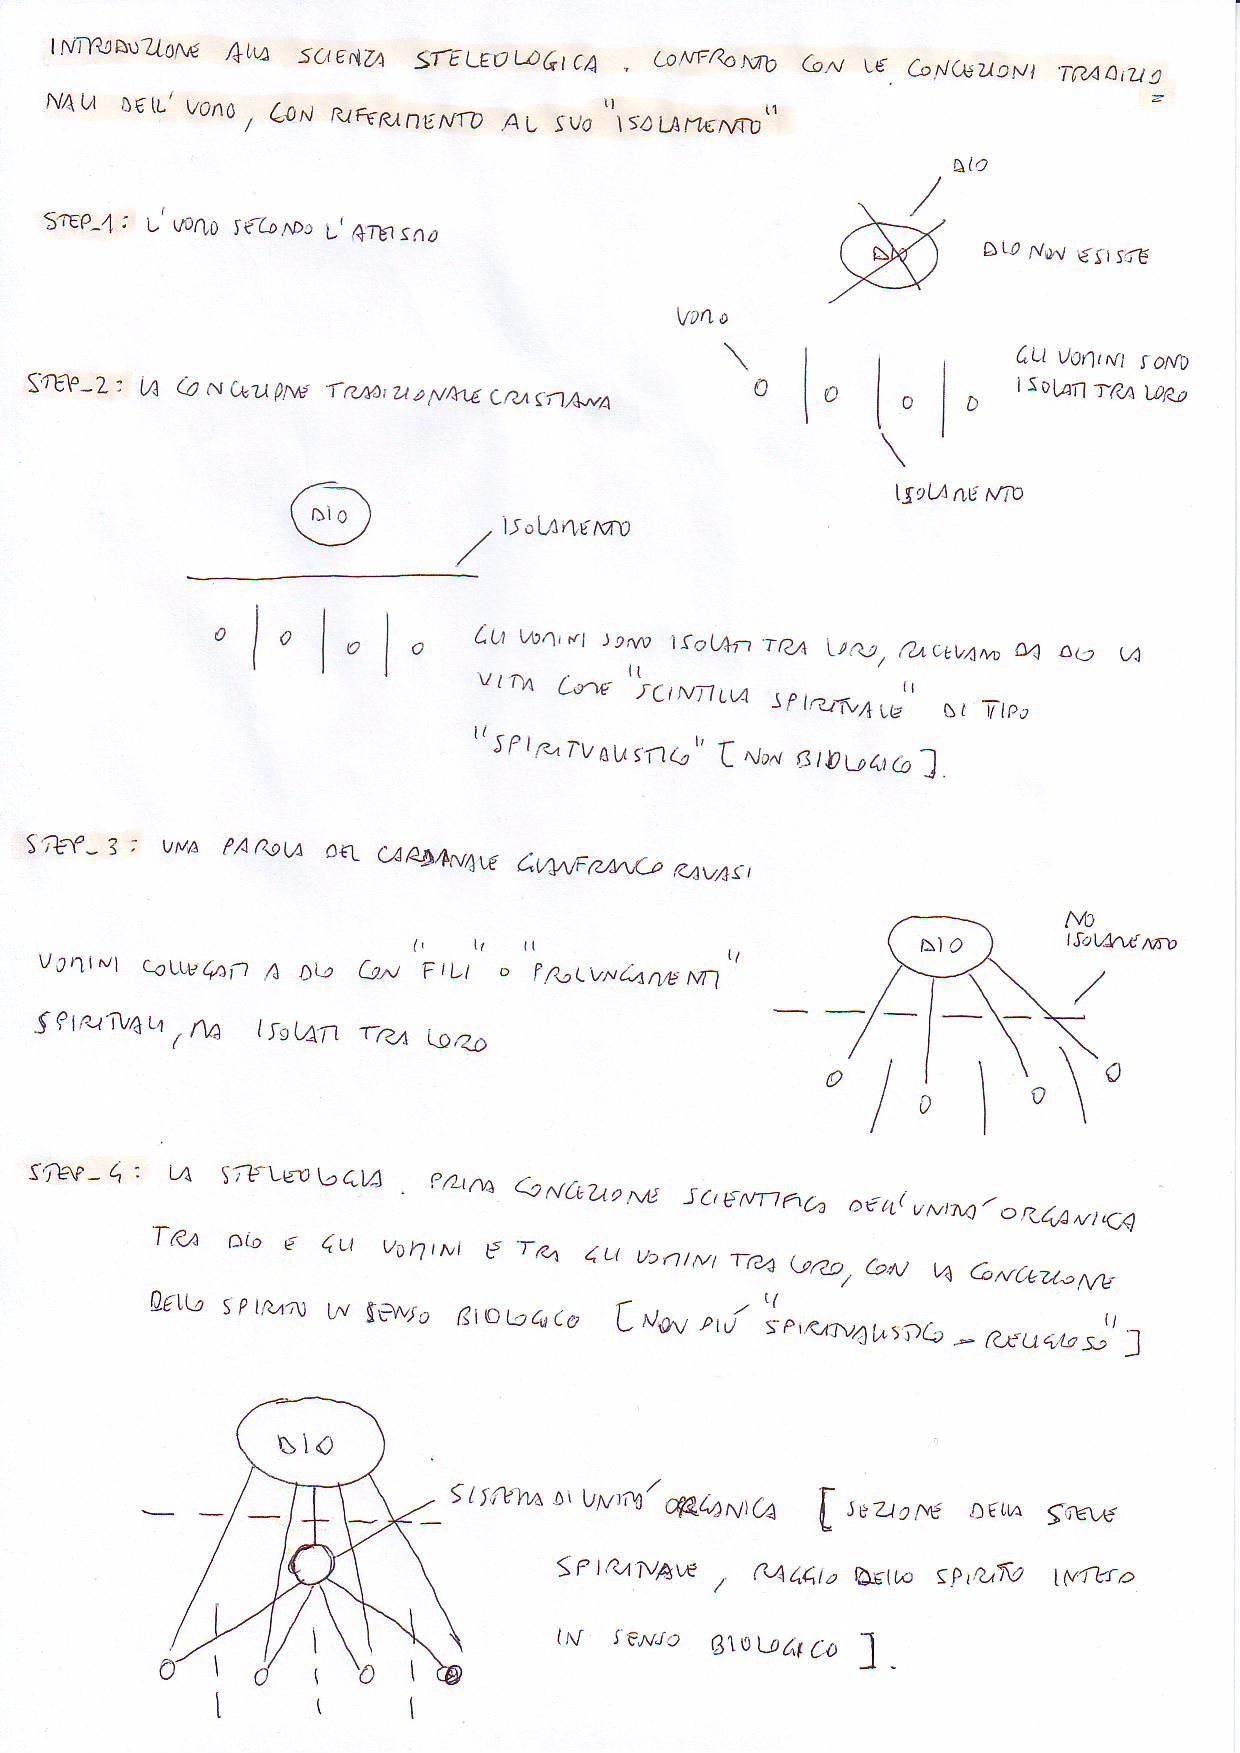 INTRODUZIONE ALLA SCIENZA STELEOLOGICA. CONFRONTO CON LE CONCEZIONI TRADIZIO
NALI DELL'UOMO, CON RIFERIMENTO AL SUO "ISOLAMENTO"
DIO
STEP_1: L'UOMO SECONDO L'ATEISMO
DIO
DIO NON ESISTE
UOMO
GLI UOMINI SONO
ISOLATI TRA LORO
STEP_2: LA CONCEZIONE TRADIZIONALE CRISTIANA
ISOLAMENTO
DIO
ISOLAMENTO
GLI UOMINI SONO ISOLATI TRA LORO, RICEVANO DA DIO LA
VITA COME "SCINTILLA SPIRITUALE" DI TIPO
"SPIRITUALISTICO" [NON BIOLOGICO].
STEP_3: UNA PAROLA DEL CARDINALE GIANFRANCO RAVASI
NO
ISOLAMENTO
DIO
UOMINI COLLEGATI A DIO CON "FILI" O "PROLUNGAMENTI"
SPIRITUALI, MA ISOLATI TRA LORO
STEP_4: LA STELEOLOGIA. PRIMA CONCEZIONE SCIENTIFICA DELL'UNITA' ORGANICA
TRA DIO E GLI UOMINI E TRA GLI UOMINI TRA LORO, CON LA CONCEZIONE
DELLO SPIRITO IN SENSO BIOLOGICO [NON PIÚ "SPIRITUALISTICO-RELIGIOSO"]
DIO
SISTEMA DI UNITA' ORGANICA [SEZIONE DELLA STELE
SPIRITUALE, RAGGIO DELLO SPIRITO INTESO
IN SENSO BIOLOGICO].